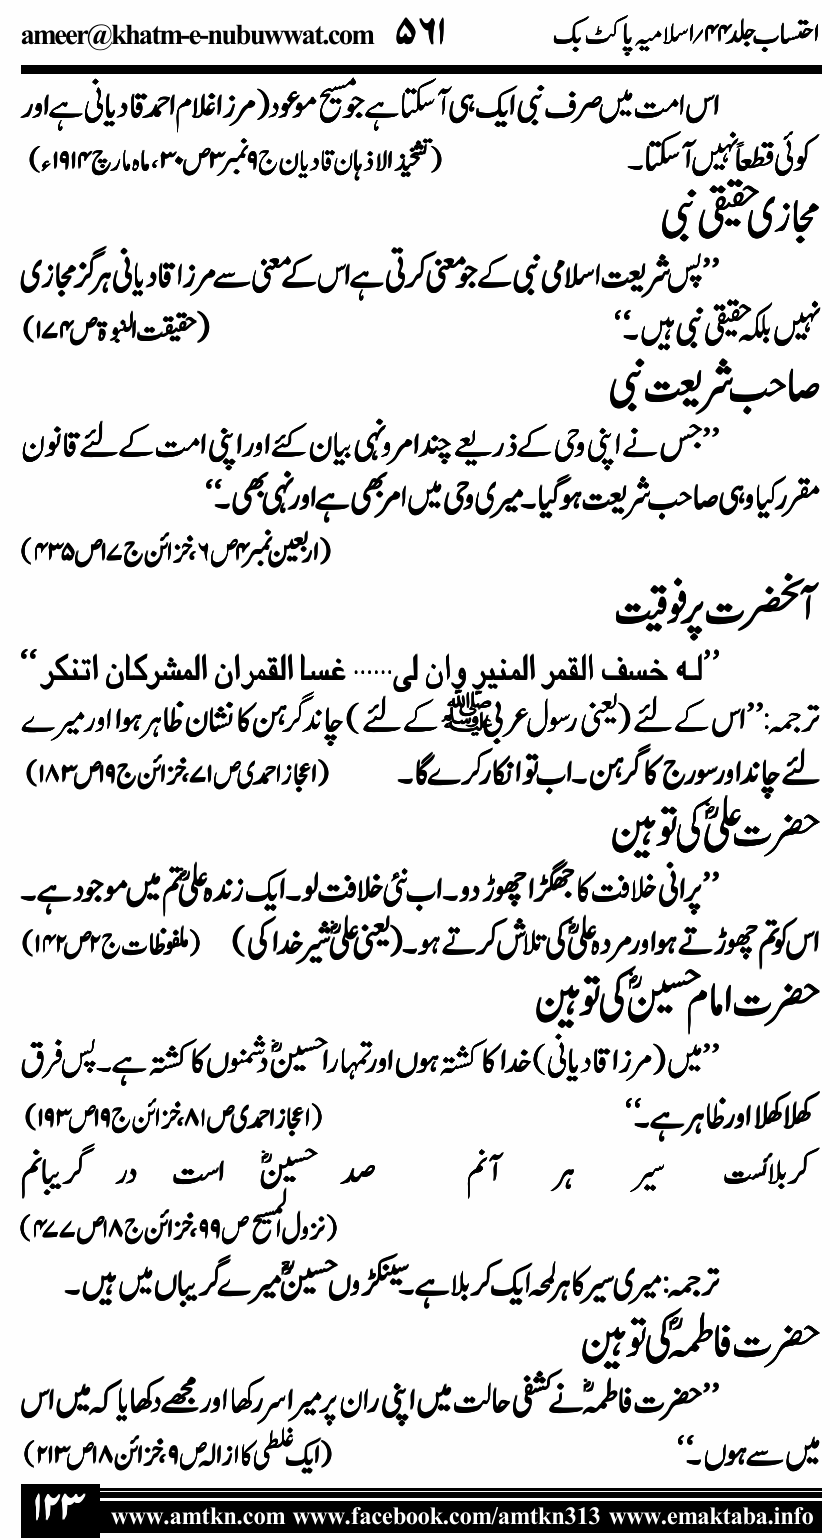 احتساب جلد۴۴؍اسلامیہ پاکٹ بک ۵۶۱ ameer@khatm-e-nubuwwat.com
اس امت میں صرف نبی ایک ہی آسکتا ہے جو مسیح موعود (مرزا غلام احمد قادیانی ہے اور
کوئی قطعاً نہیں آسکتا۔ (تشحیذ الاذہان قادیان ج۹نمبر۳ص۳۰، ماہ مارچ ۱۹۱۴ء)
مجازی حقیقی نبی
’’پس شریعت اسلامی نبی کے جو معنی کرتی ہے اس کے معنی سے مرزا قادیانی ہرگز مجازی
نہیں بلکہ حقیقی نبی ہیں۔‘‘ (حقیقت النبوۃ ص۱۷۴)
صاحب شریعت نبی
’’جس نے اپنی وحی کے ذریعے چند امر ونہی بیان کئے اور اپنی امت کے لئے قانون
مقرر کیا وہی صاحب شریعت ہوگیا۔ میری وحی میں امر بھی ہے اور نہی بھی۔‘‘
(اربعین نمبر۴ص۶، خزائن ج۱۷ص۴۳۵)
آنحضرت پر فوقیت
’’لہ خسف القمر المنیر وان لی...... غسا القمران المشرکان اتنکر‘‘
ترجمہ: ’’اس کے لئے (یعنی رسول عربیﷺ کے لئے) چاند گرہن کا نشان ظاہر ہوا اور میرے
لئے چاند اور سورج کا گرہن۔ اب تو انکار کرے گا۔ (اعجاز احمدی ص۷۱، خزائن ج۱۹ص۱۸۳)
حضرت علیؓ کی توہین
’’پرانی خلافت کا جھگڑا چھوڑ دو۔ اب نئی خلافت لو۔ ایک زندہ علیؓ تم میں موجود ہے۔
اس کو تم چھوڑتے ہو اور مردہ علیؓ کی تلاش کرتے ہو۔ (یعنی علیؓ شیر خدا کی) (ملفوظات ج۲ص۱۴۲)
حضرت امام حسینؓ کی توہین
’’میں (مرزا قادیانی) خدا کا کشتہ ہوں اور تمہارا حسینؓ دشمنوں کا کشتہ ہے۔ پس فرق
کھلا کھلا اور ظاہر ہے۔‘‘ (اعجاز احمدی ص۸۱، خزائن ج۱۹ص۱۹۳)
کربلائست سیر ہر آنم صد حسینؓ است در گریبانم
(نزول المسیح ص۹۹، خزائن ج۱۸ص۴۷۷)
ترجمہ: میری سیر کا ہر لمحہ ایک کربلا ہے۔ سینکڑوں حسینؓ میرے گریباں میں ہیں۔
حضرت فاطمہؓ کی توہین
’’حضرت فاطمہؓ نے کشفی حالت میں اپنی ران پر میرا سر رکھا اور مجھے دکھایا کہ میں اس
میں سے ہوں۔‘‘ (ایک غلطی کا ازالہ ص۹، خزائن ۱۸ص۲۱۳)
۱۲۳ www.amtkn.com www.facebook.com/amtkn313 www.emaktaba.info